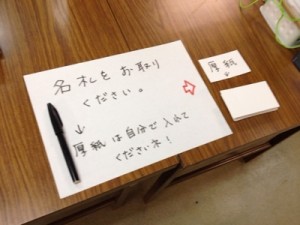 名札をお取り
ください。
↓
厚紙は自分で入れて
くださいネ!
⇨
厚紙
↓